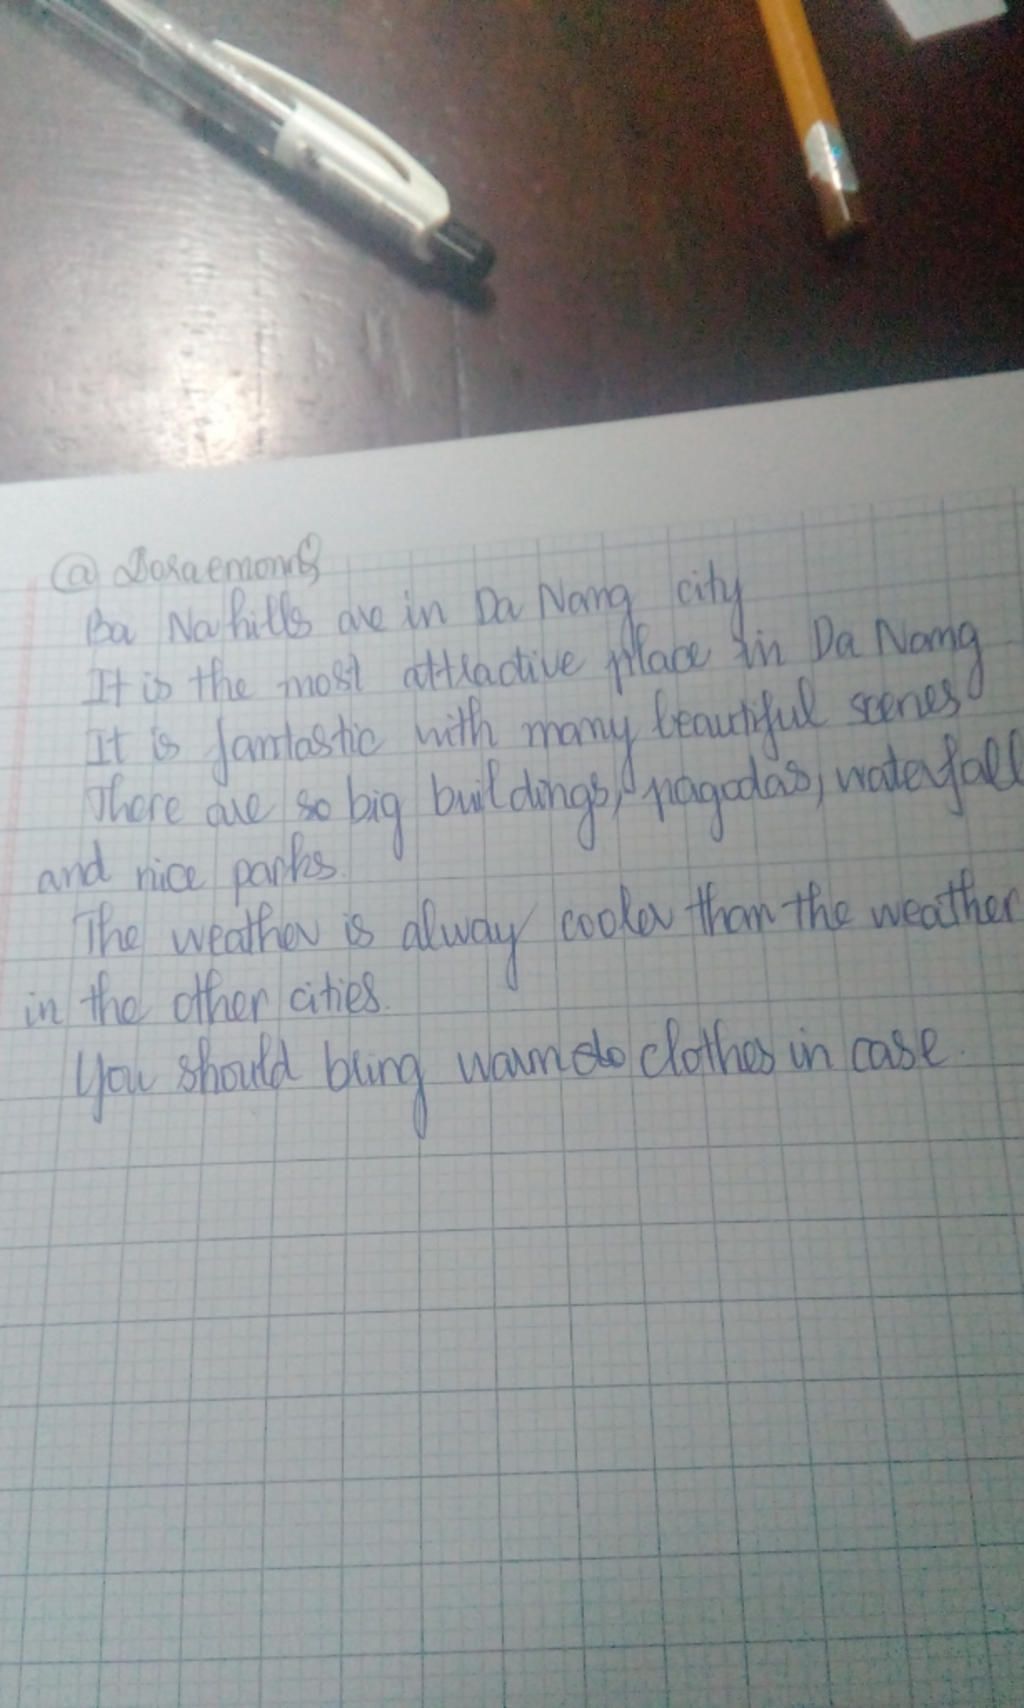 @ Doraemon
Ba Na hills are in Da Nang city
It is the most attractive place in Da Nang
It is fantastic with many beautiful scenes
There are so big buildings, pagodas, waterfall
and nice parks.
The weather is alway cooler than the weather
in the other cities.
You should bring clothes in case.